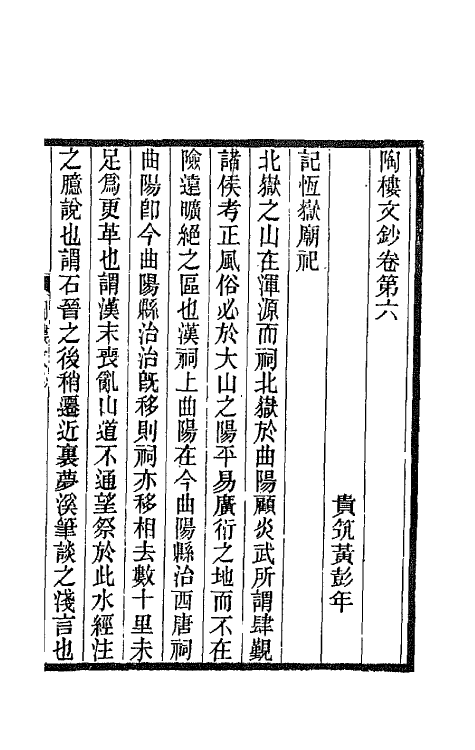 陶樓文鈔卷第六
貴筑黃彭年
記恆嶽廟祀
北嶽之山在渾源而祠北嶽於曲陽顧炎武所謂肆覲
諸侯考正風俗必於大山之陽平易廣衍之地而不在
險遠曠絕之區也漢祠上曲陽在今曲陽縣治西唐祠
曲陽卽今曲陽縣治治旣移則祠亦移相去數十里未
足爲更革也謂漢末喪亂山道不通望祭於此水經注
之臆說也謂石晉之後稍遷近裏夢溪筆談之淺言也